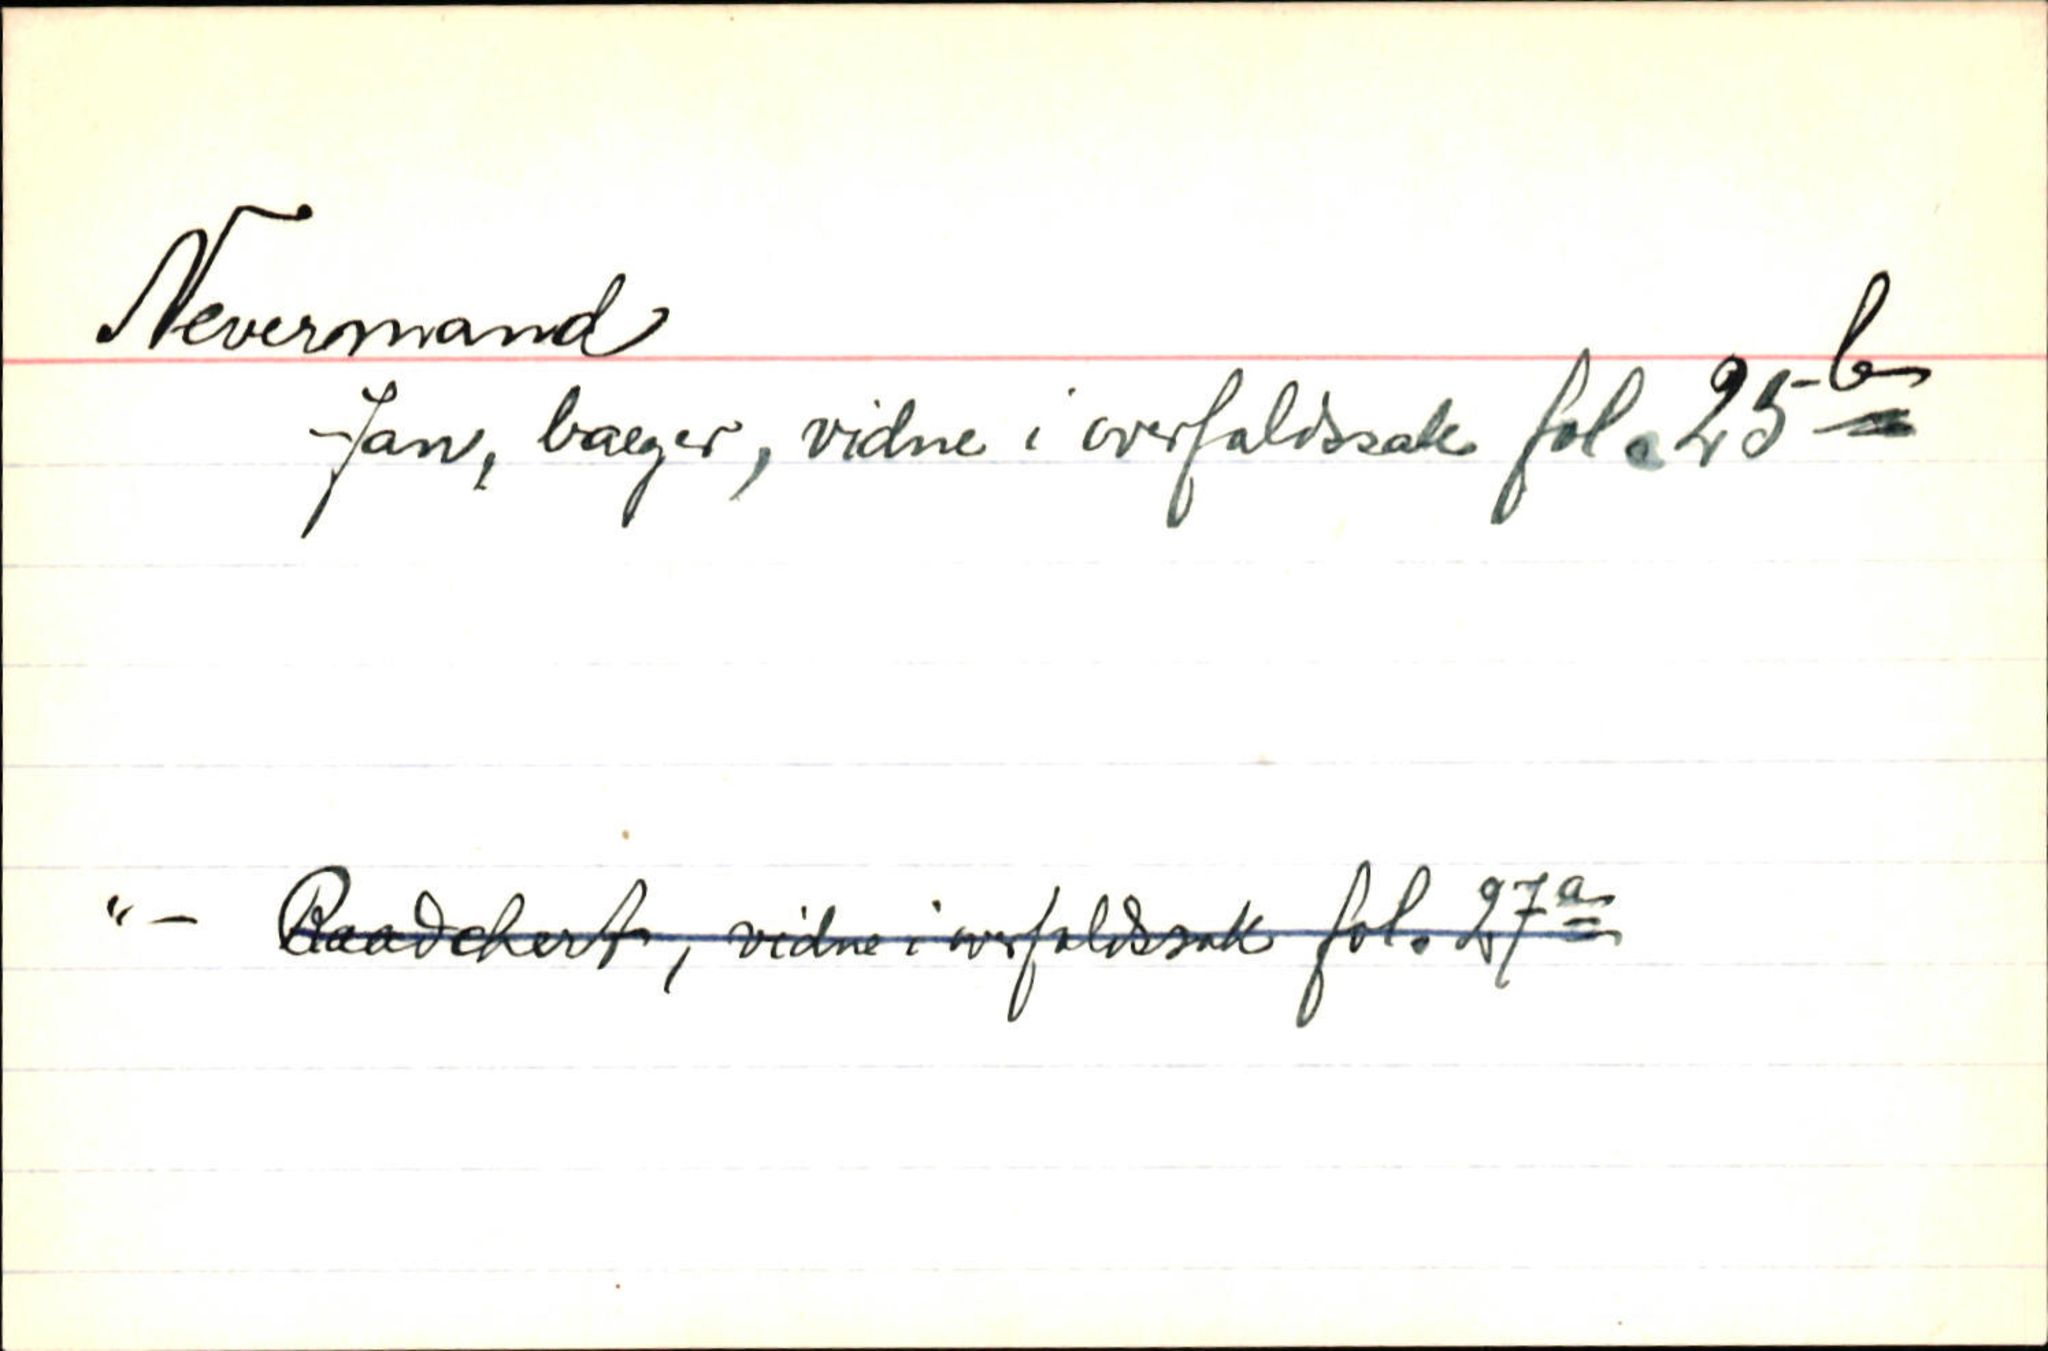 Nevermand
Jan, baeger, vidne i overfaldssak fol. 25 b
"- Raadchert, vidne i overfaldssak fol. 27 a